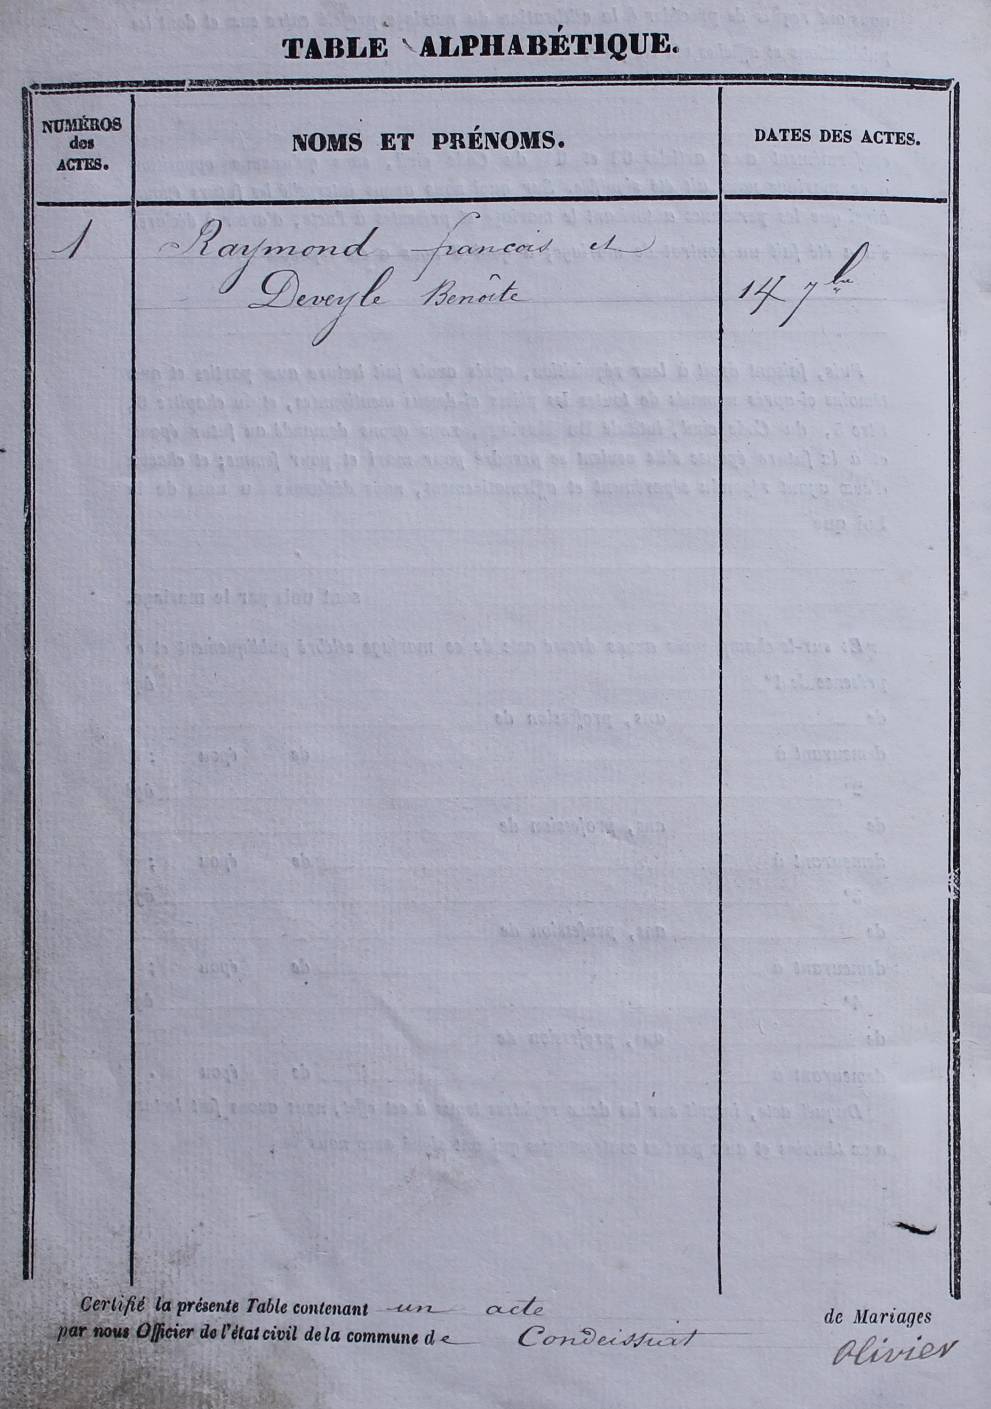 TABLE ALPHABÉTIQUE.
NUMÉROS
des
ACTES.
NOMS ET PRÉNOMS.
DATES DES ACTES.
1 Raymond françois et
Deveyle Benoîte 14 7bre
Certifié la présente Table contenant un acte de Mariages
par nous Officier de l'état civil de la commune de Condeissiat
Olivier